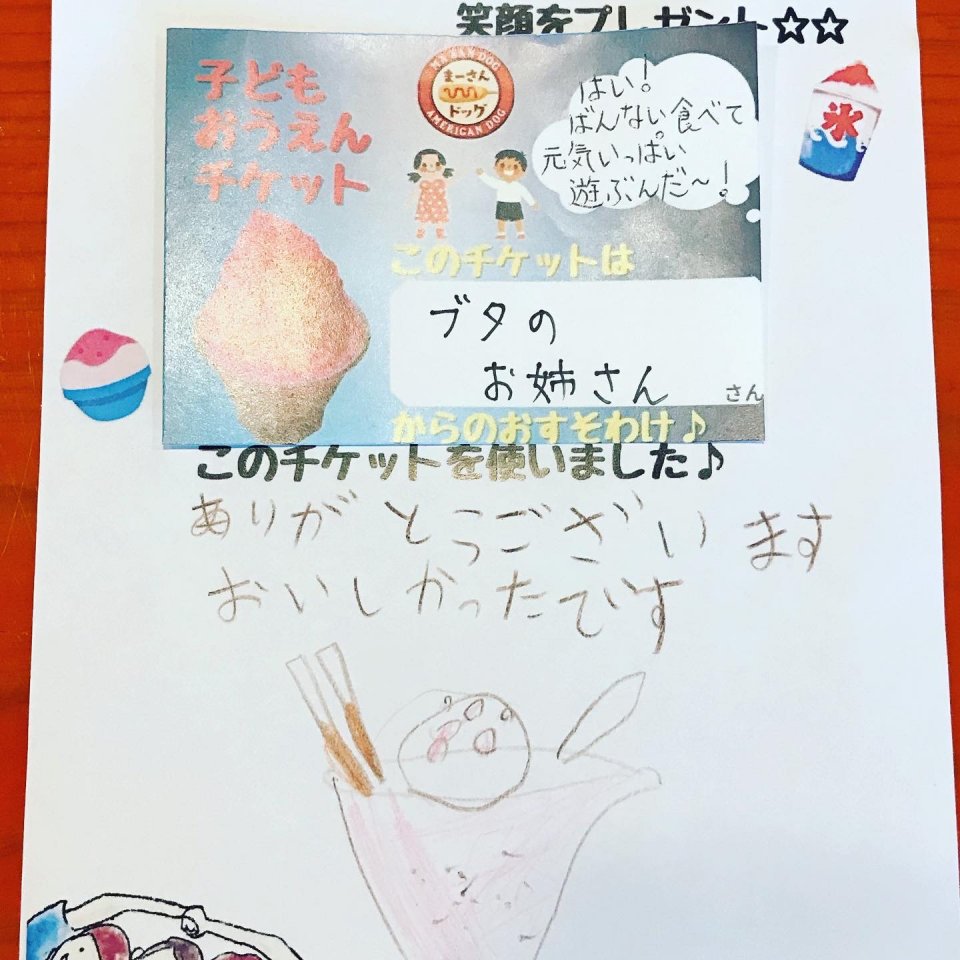 笑顔をプレゼント☆☆
子ども
おうえん
チケット
MA-SAN DOG
まーさん
ドッグ
AMERICAN DOG
はい!
ばんない食べて
元気いっぱい
遊ぶんだ〜!
氷
このチケットは
ブタの
お姉さん
さん
からのおすそわけ♪
このチケットを使いました♪
ありがとうございます
おいしかったです